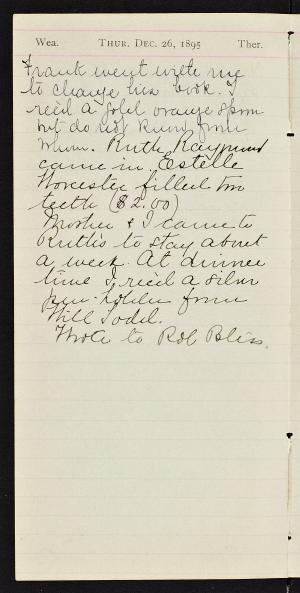 Wea. THUR. DEC. 26, 1895 Ther.
Frank went with me
to change his book. I
rec'd a gold orange spoon
but do not know from
whom. Ruth Raymond
came in. Estelle
Worcester filled two
teeth ($2.00)
Mother & I came to
Ruth's to stay about
a week. At dinner
time I rec'd a silver
pen-holder from
Will Todd.
Wrote to Rob Bliss.